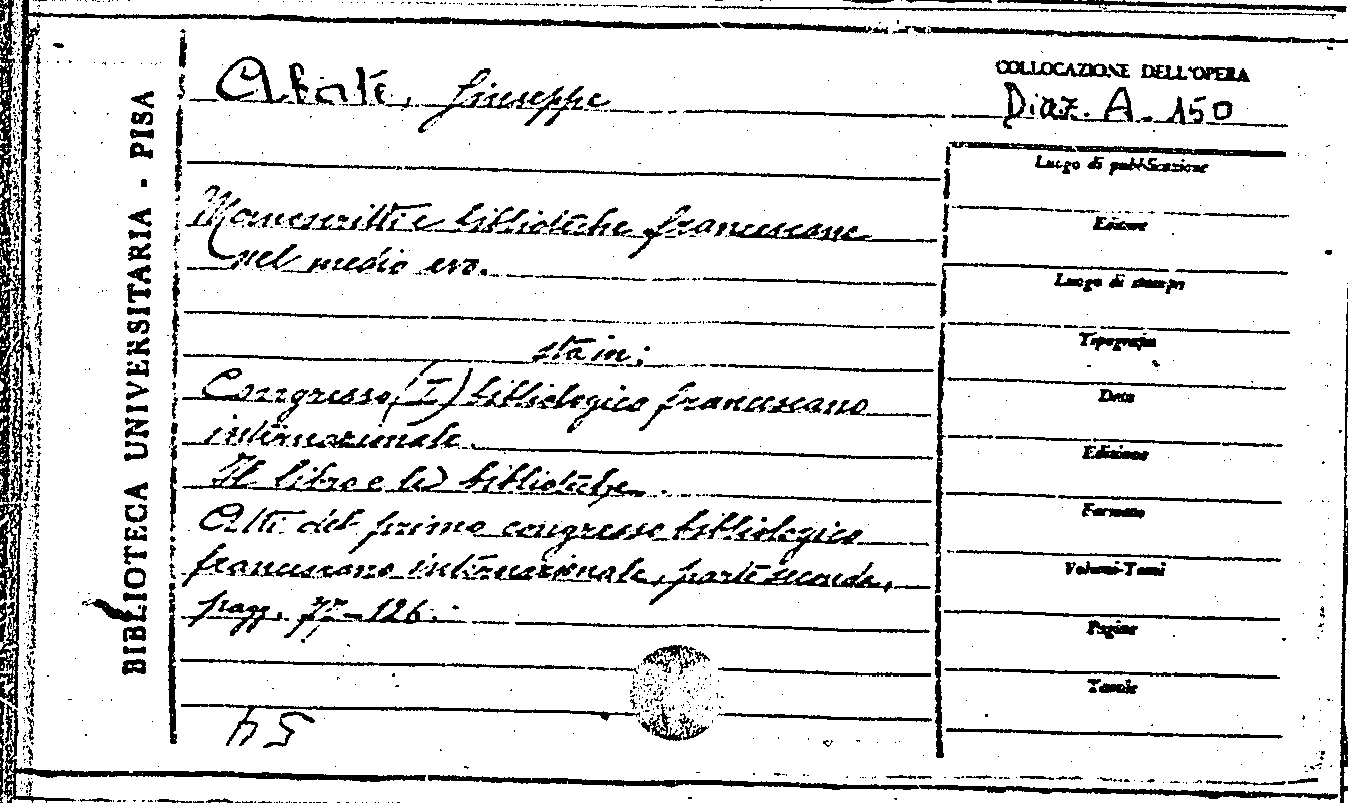 BIBLIOTECA UNIVERSITARIA - PISA
Abate, Giuseppe
COLLOCAZIONE DELL'OPERA
Diaz. A. 150
Manoscritti e biblioteche francescane
nel medio evo.
sta in:
Congresso (I) bibliologico francescano
internazionale.
Il libro e le biblioteche.
Atti del primo congresso bibliologico
francescano internazionale, parte seconda,
pagg. 77-126.
Luogo di pubblicazione
Editore
Luogo di stampa
Tipografia
Data
Edizione
Formato
Volumi-Tomi
Pagine
Tavole